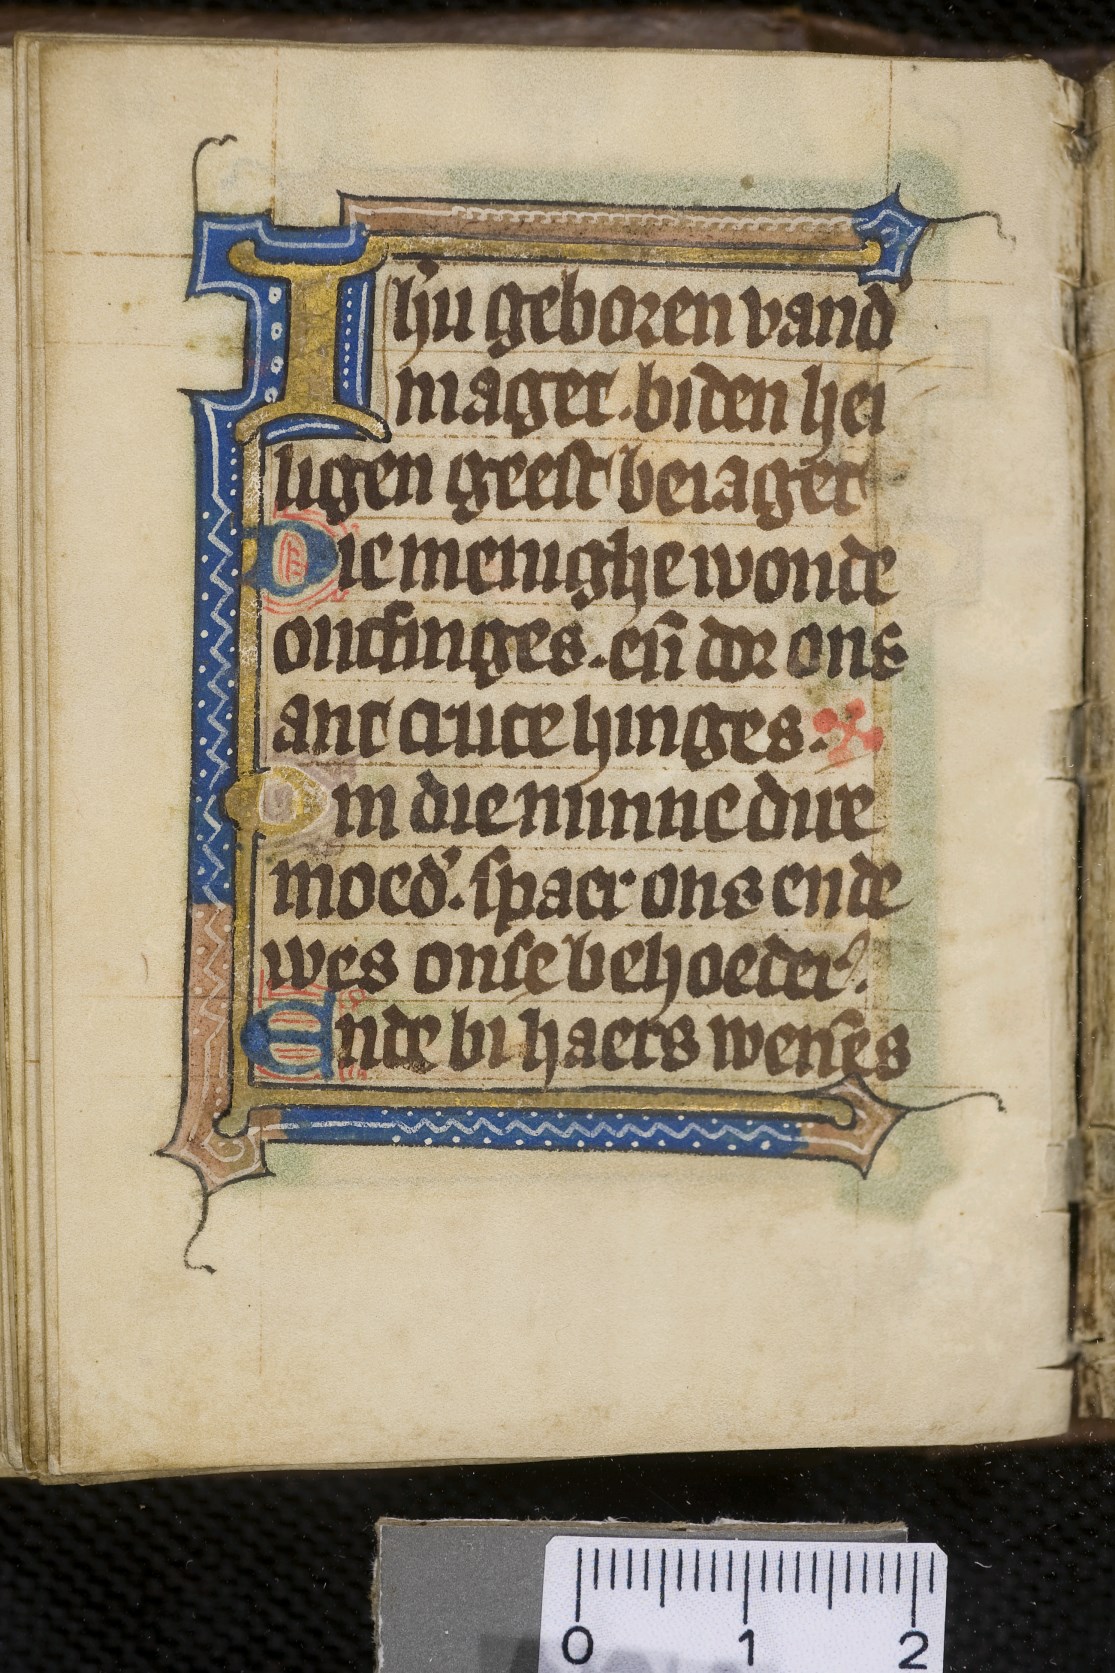 Ihu geboren vand'
maget. biden hei
ligen geest beiaget
Die menighe wonde
ontfinges. en̄ dor ons
ant cruce hinges.
Om die minne dire
moed'. spaer ons ende
wes onse behoeder.
Ende bi haers wenses
0 1 2